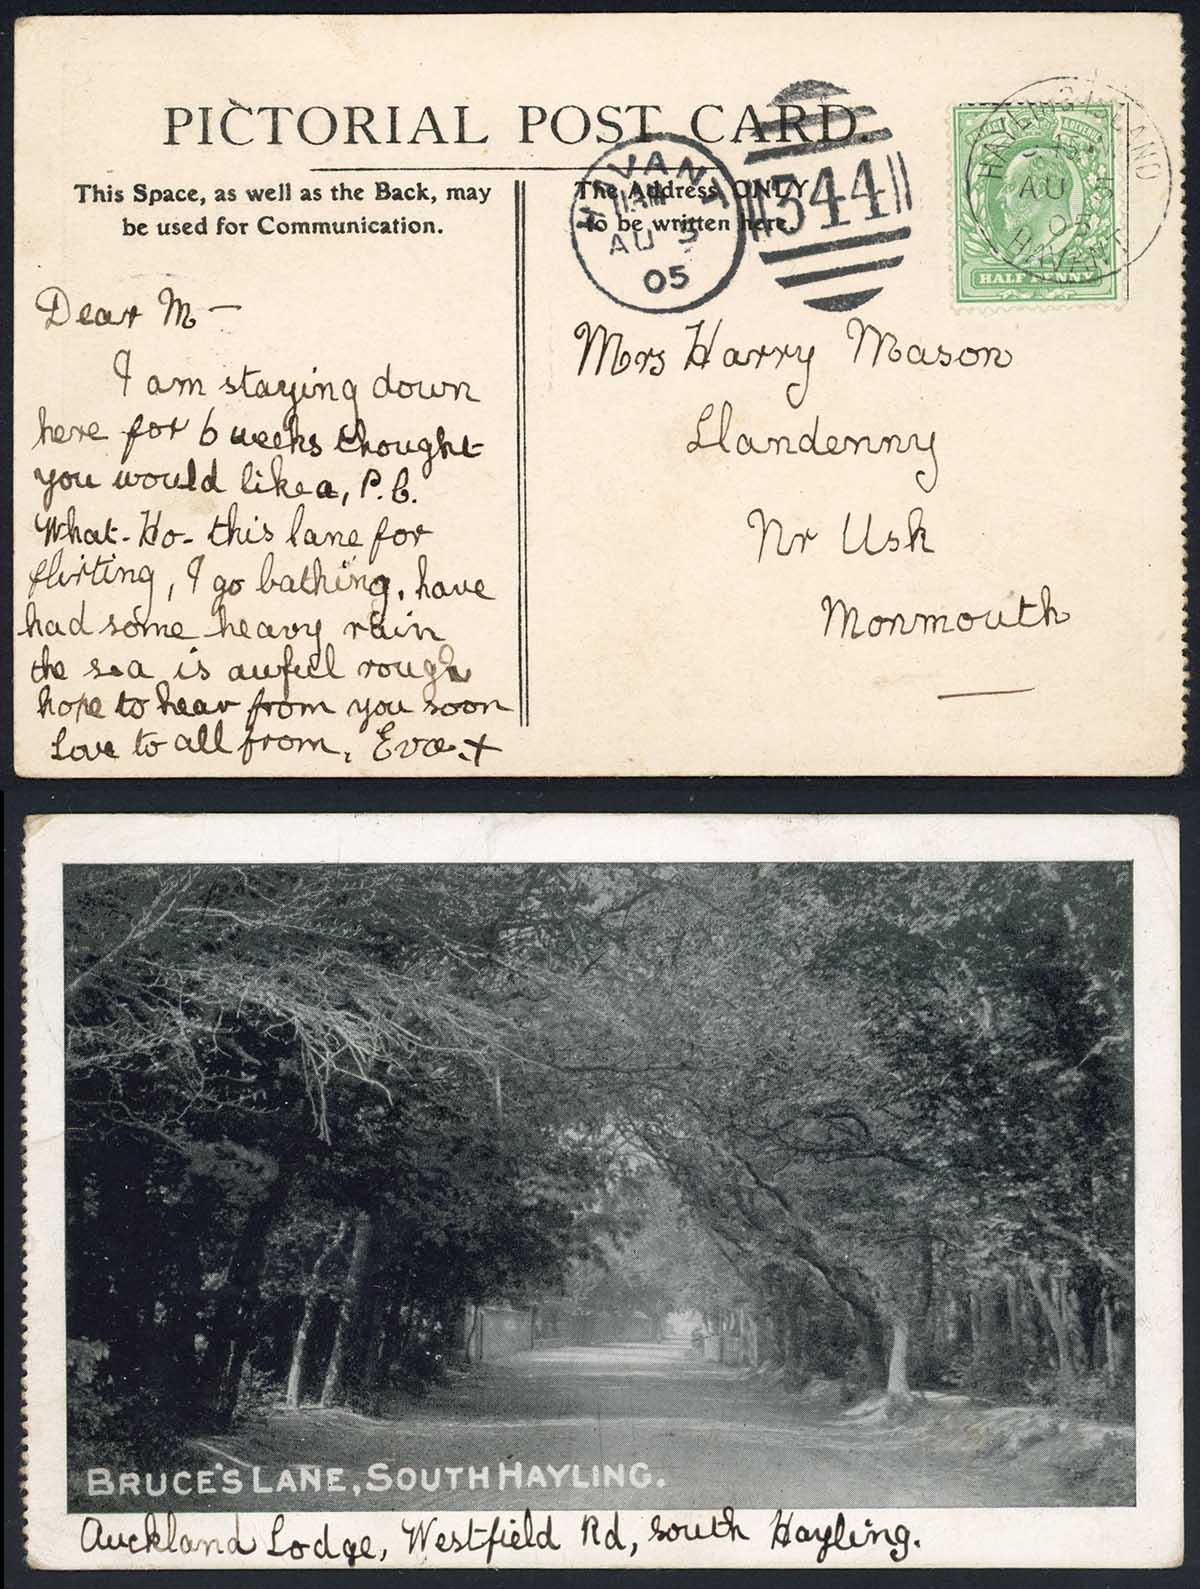 PICTORIAL POST CARD.
This Space, as well as the Back, may
be used for Communication.
The Address ONLY
to be written here.
HAVANT
AU 5
05
344
HAYLING ISLAND
AU 5
05
HAVANT
HALFPENNY
Dear M-
I am staying down
here for 6 weeks thought
you would like a, P.C.
What-Ho- this lane for
flirting, I go bathing, have
had some heavy rain
the sea is awful rough
hope to hear from you soon
Love to all from, Eva.x
Mrs Harry Mason
Llandenny
Nr Usk
Monmouth
BRUCE'S LANE, SOUTH HAYLING.
Auckland Lodge, Westfield Rd, South Hayling.